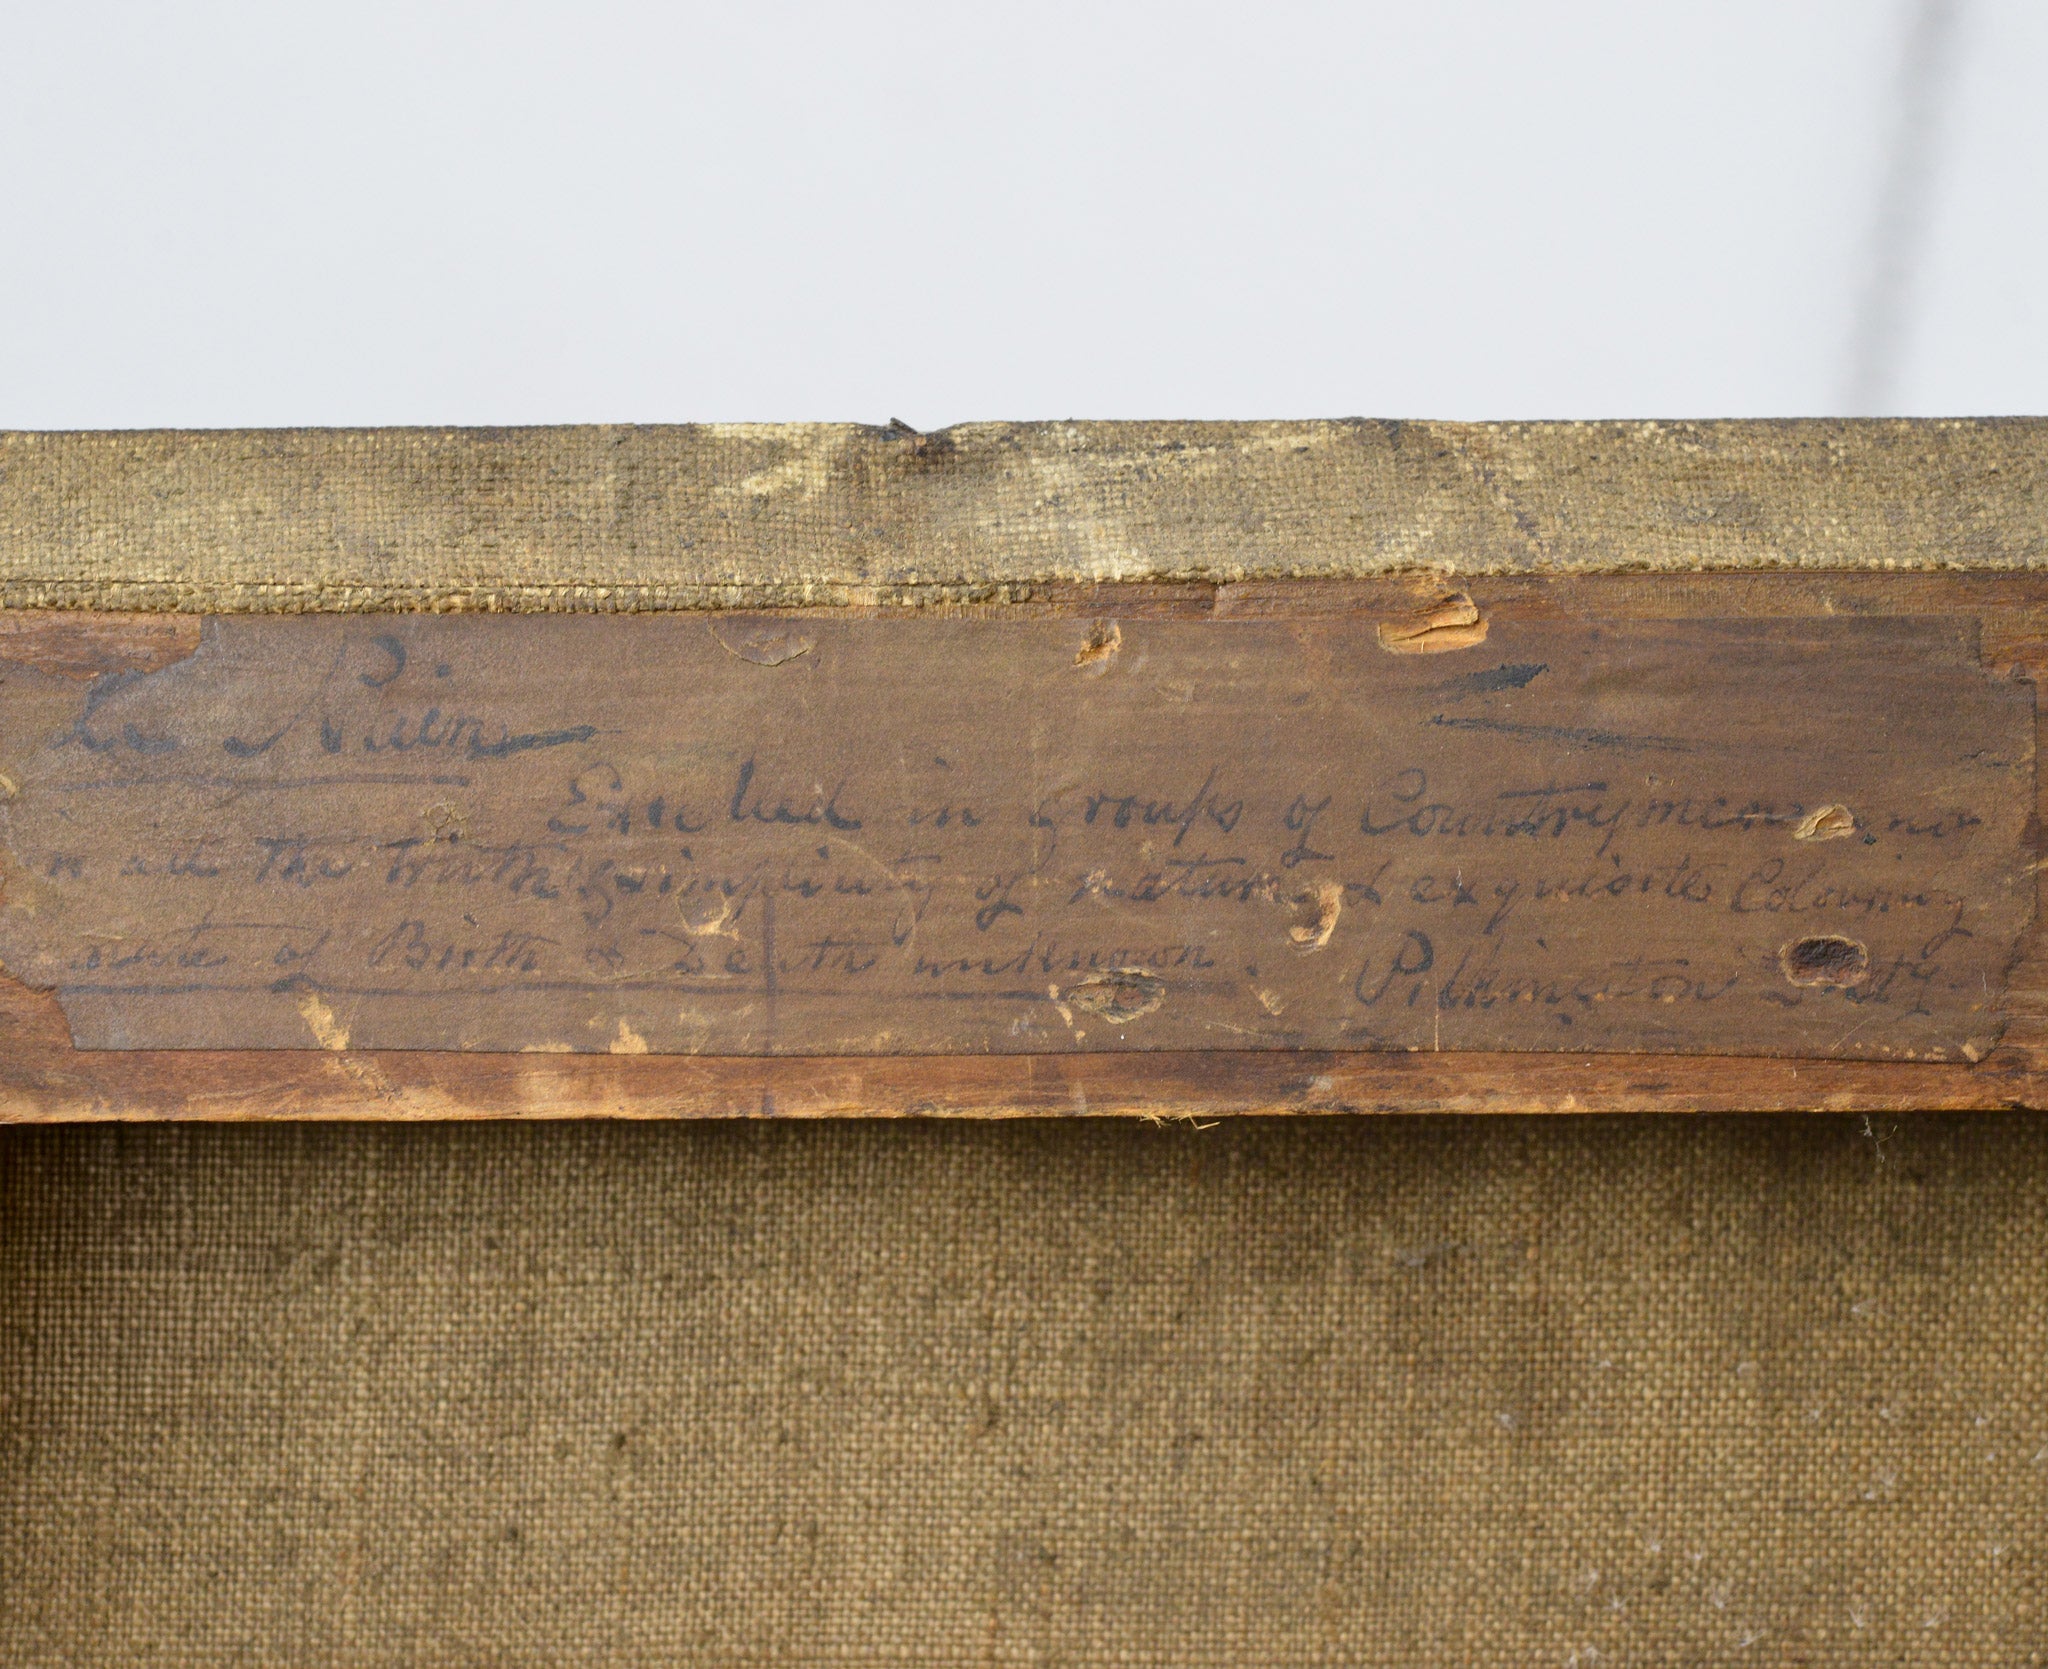 Le Nain
Excelled in groups of Countrymen
in all the truth & simplicity of nature & exquisite Colouring
date of Birth & Death unknown. Pilkington Dicty.